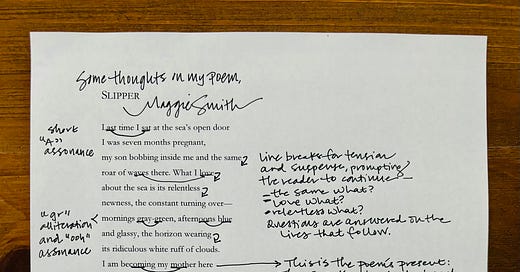 Some thoughts on my poem,
SLIPPER
Maggie Smith
Last time I sat at the sea's open door
I was seven months pregnant,
my son bobbing inside me and the same
roar of waves there. What I love
about the sea is its relentless
newness, the constant turning over—
mornings gray-green, afternoons blue
and glassy, the horizon wearing
its ridiculous white ruff of clouds.
I am becoming my mother here
short
"A"
assonance
"gr"
alliteration
and "ooh"
assonance
Line breaks for tension
and suspense, prompting
the reader to continue—
– the same what?
– love what?
– relentless what?
Questions are answered on the
lines that follow.
This is the poem's present: